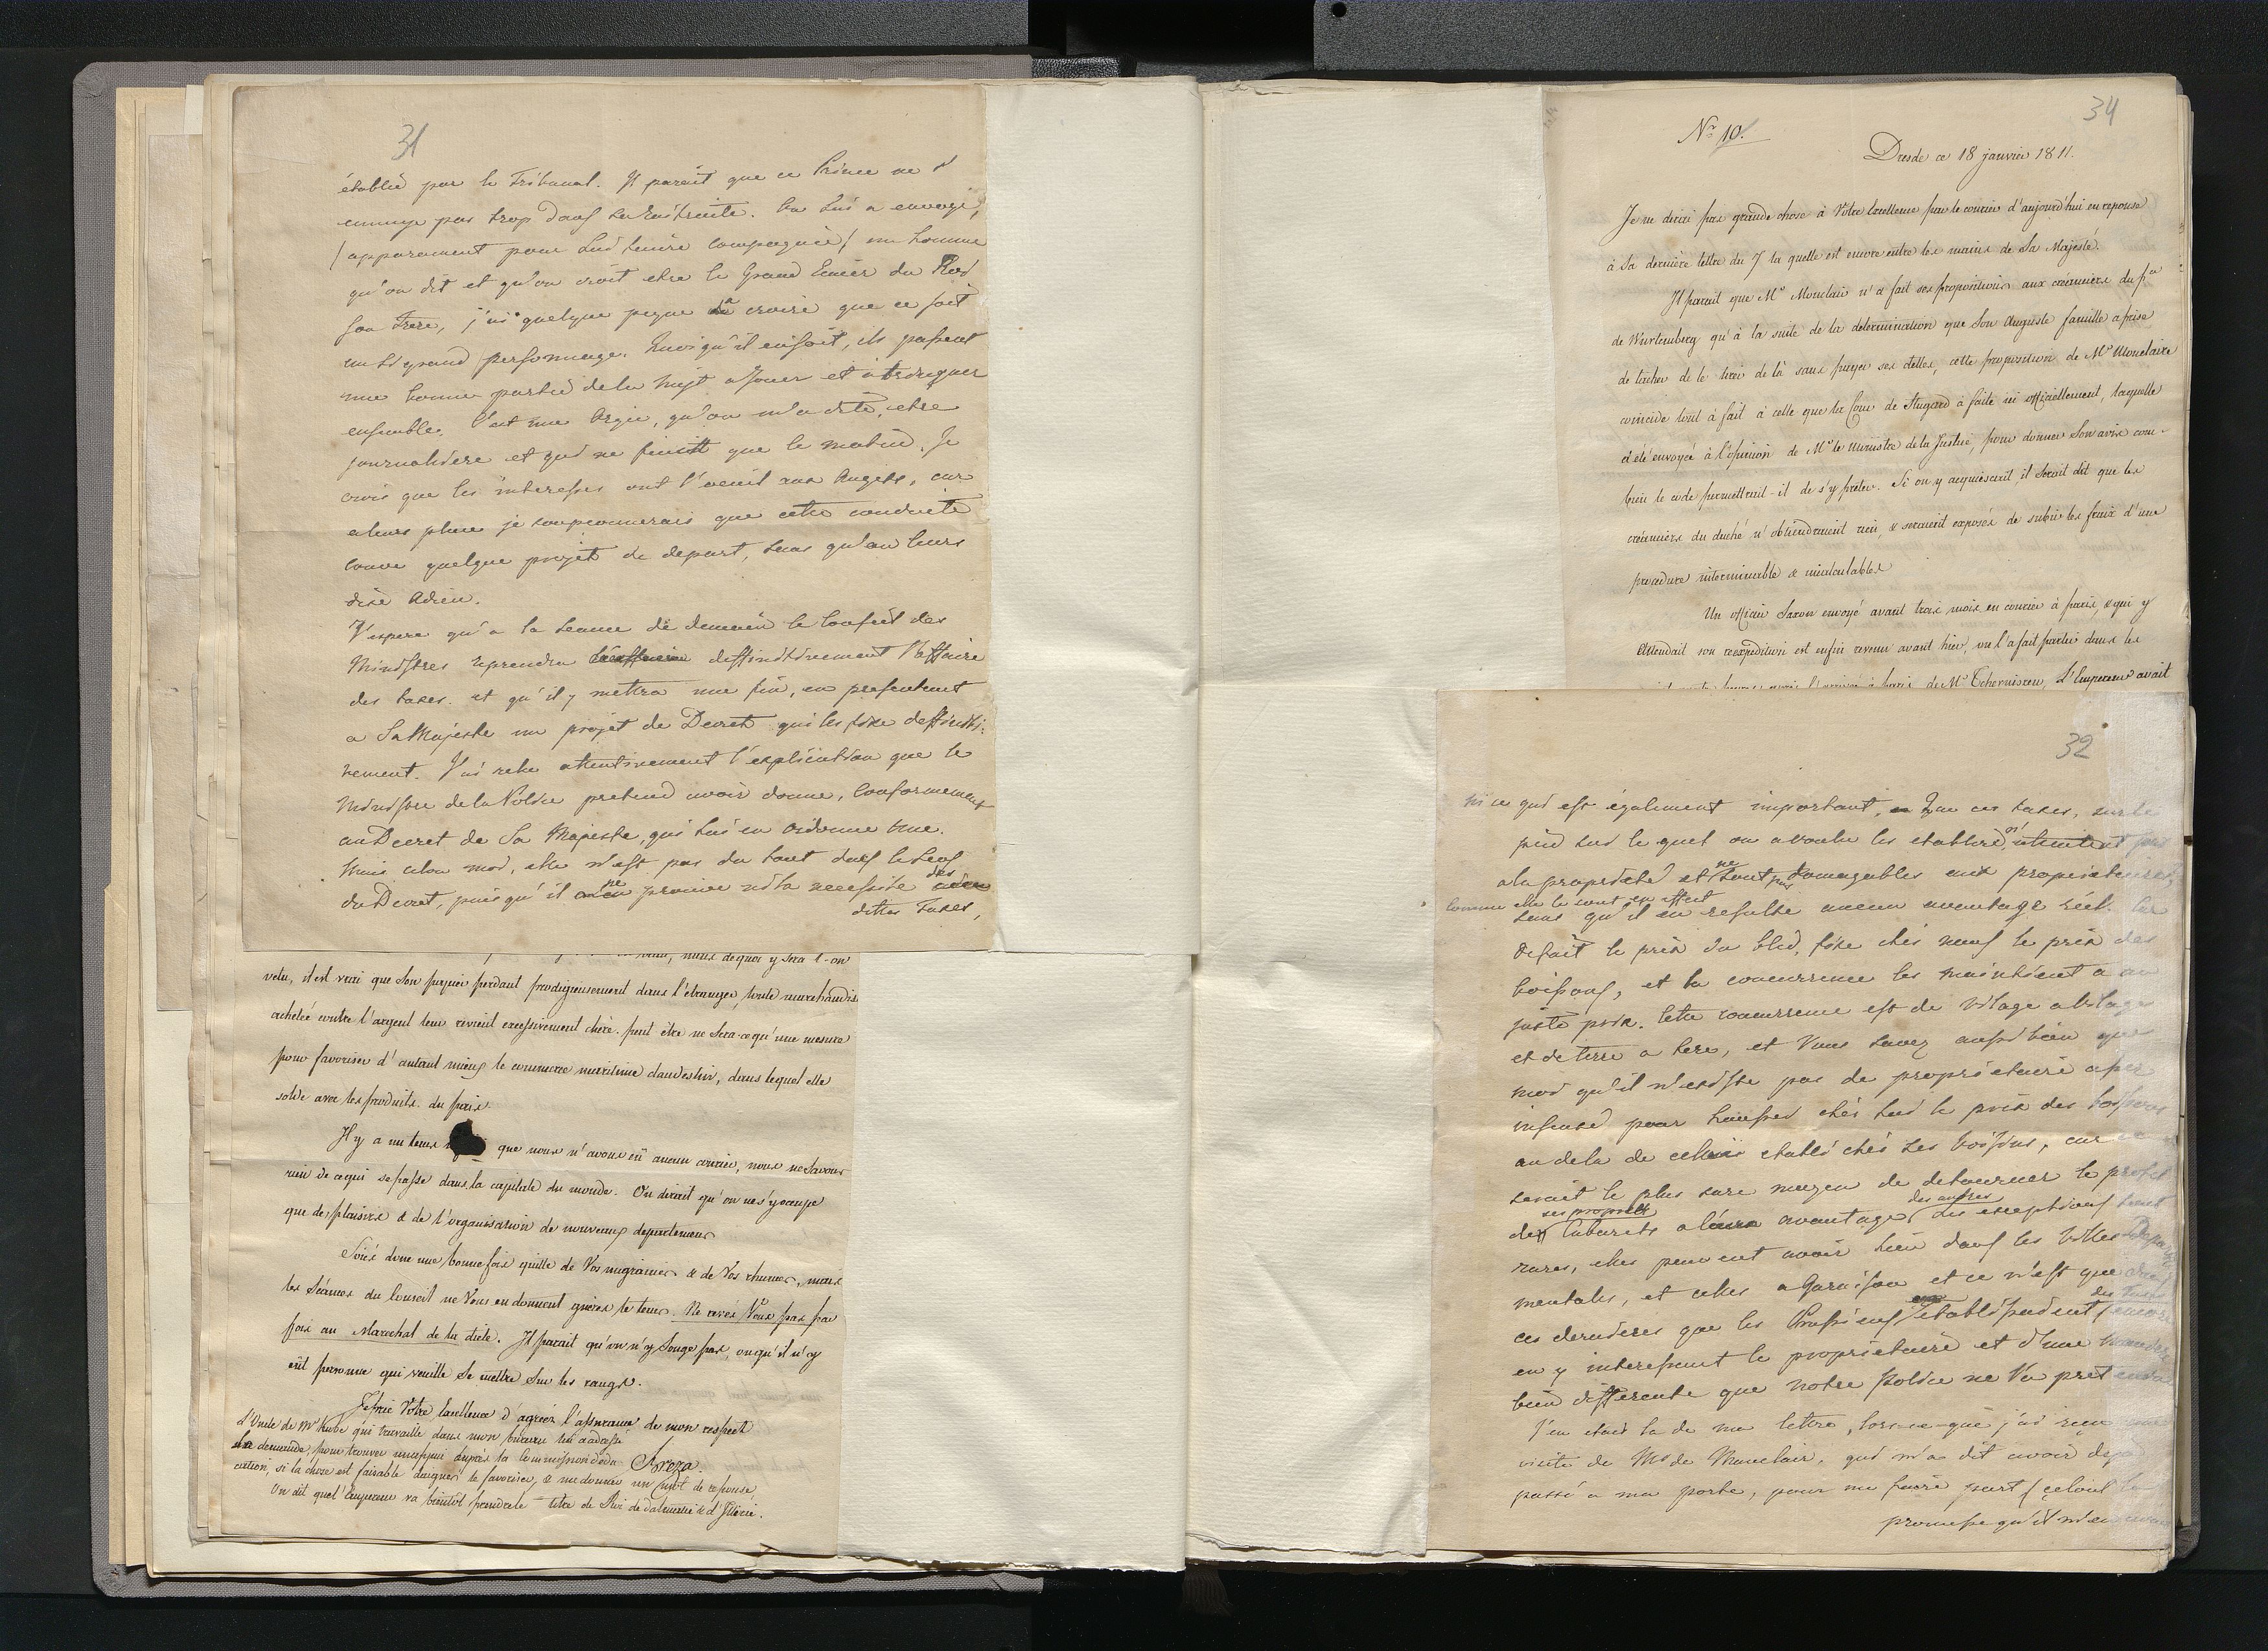 31
établie par le Tribunal. Il parait que ce Prince ne s'
ennuye pas trop dans sa On lui a envoyé,
(apparament pour lui tenire compagnie) un homme
qu'on dit et qu'on croit etre le Grand Ecuier du Roi
son Frere, j'ai quelque peyne a croire que ce soit
un si grand personnage. Quoiqu'il en soit, ils passent
une bonne partie de la nuit a Jouer et a
ensemble. C'est une Orgie, qu'on m'a dite, etre
journaliere et qui ne finit que le matin. Je
crois que les interesses ont l'oeuil aux Augets, car
a leurs place je soupconnerais que cette conduite
couve quelque projet de depart, sans qu'on leurs
dise Adieu.
J'espere qu'a la seance de demain le Conseil des
Ministres reprendra deffinitivement l'affaire
des taxes. et qu'il y mettra une fin, en presentant
a Sa Majeste un projet de Decret qui les fixe deffiniti-
vement. J'ai relu attentivement l'explication que le
Ministre de la Police pretend avoir donne, conformement
au Decret de Sa Majeste, qui lui en ordonne une.
Mais selon moi, elle n'est pas du tout dans le sens
du Decret, puisqu'il ne prouve ni la necessite des
dittes Taxes,
mais de quoi y sera l-on
vetu, il est vrai que son papier perdant prodigieusement dans l'etranger, toute marchandise
achetée contre l'argent leur revient excessivement chère. peut être ne sera-ce qu'une mesure
pour favoriser d'autant mieux le commerce maritime clandestin, dans lequel elle
solde avec les produits du païs.
Il y a un tems que nous n'avons eû aucun courier, nous ne savons
rien de ce qui se passe dans la capitale du monde. On dirait qu'on ne s'y occupe
que de plaisirs & de l'organisation de nouveaux departemens
Soiés donc une bonne fois quitte de Vos migraines & de Vos rhumes, mais
les Séances du Conseil ne Vous en donnent guères le tems. Ne revés Vous pas par
fois au Marechal de la diète. Il parait qu'on n'y songe pas, ou qu'il n'y
ait personne qui veuille se mettre sur les rangs.
Je prie Votre Excellence d'agréer l'assurance de mon respect
l'Oncle de Mr Kube qui travaille dans mon bureau lui a adressé
sa demande, pour trouver un appui auprès la Commission
Breza.
cution, si la chose est faisable daignés le favoriser, & me donner un mot de reponse.
On dit que l'Empereur va bientôt prendre le titre de Roi de Dalmatie & d'Illirie.
34
Nr 10.
Dresde ce 18 janvier 1811.
Je ne dirai pas grande chose à Votre Excellence par le courier d'aujourd'hui en reponse
à sa dernière lettre du 7 la quelle est encore entre les mains de Sa Majesté.
Il parait que Mr Monclair n'a fait ses propositions aux créanciers du pce
de Wurtemberg qu'à la suite de la determination que Son Auguste famille a prise
de tacher de le tirer de là sans payer ses dettes, cette proposition de Mr Monclaire
coincide tout à fait à celle que la Cour de Stugard à faite ici officiellement, laquelle
a été envoyée à l'opinion de Mr le ministre de la Justice, pour donner Son avis com-
bien le code permettrait-il de s'y prêter. Si on y acquiesçait, il serait dit que les
créanciers du duché n'obtiendraient rien, & seraient exposés de subir les fraix d'une
procedure interminable & incalculable.
Un officier Saxon envoyé avant trois mois en courier à paris, & qui y
attendait son réexpedition est enfin revenu avant hier, on l'a fait partir dans les
de Mr Tchernischew, L'Empereur avait
32
ni ce qui est également important, Que ces taxes, sur le
pied sur le quel on a voulu les etablire, n'
a la propriété et ne sont pas domagables aux proprietaires,
comme elle le sont en effet
sans qu'il en resulte aucun aventage réel. Car
de fait le prix du bled, fixe chés nous le prix des
boissons, et la concurrence les maintient a un
juste prix. Cette concurrence est de vilage a vilage
et de terre a tere, et Vous savez aussi bien que
moi qu'il n'existe pas de proprietaire assez
insensé pour hausser chés lui le prix des boissons
au dela de celui etabli chés ses voisins, car
serait le plus sure moyen de detourner le profit
ses propres des autres
des Cabarets a avantage. Les exceptions sont
rares, elles peuvent avoir lieu dans les Villes Depar
mentales, et celles a Garnison et ce n'est que
ces dernieres que les Prussiens etablissaient des taxes
en y interessant le proprietaire et d'une maniere
bien differente que notre Police ne l'a pretendu
J'en etais la de ma lettre, lors-ce-que j'ai reçu une
visite de Mr de Mauclair, qui m'a dit avoir deja
passé a ma porte, pour me faire part (selon la
promesse qu'il m'en